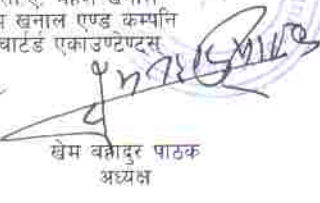 खनाल एण्ड कम्पनि
चार्टर्ड एकाउण्टेण्ट्स
खेम बहादुर पाठक
अध्यक्ष